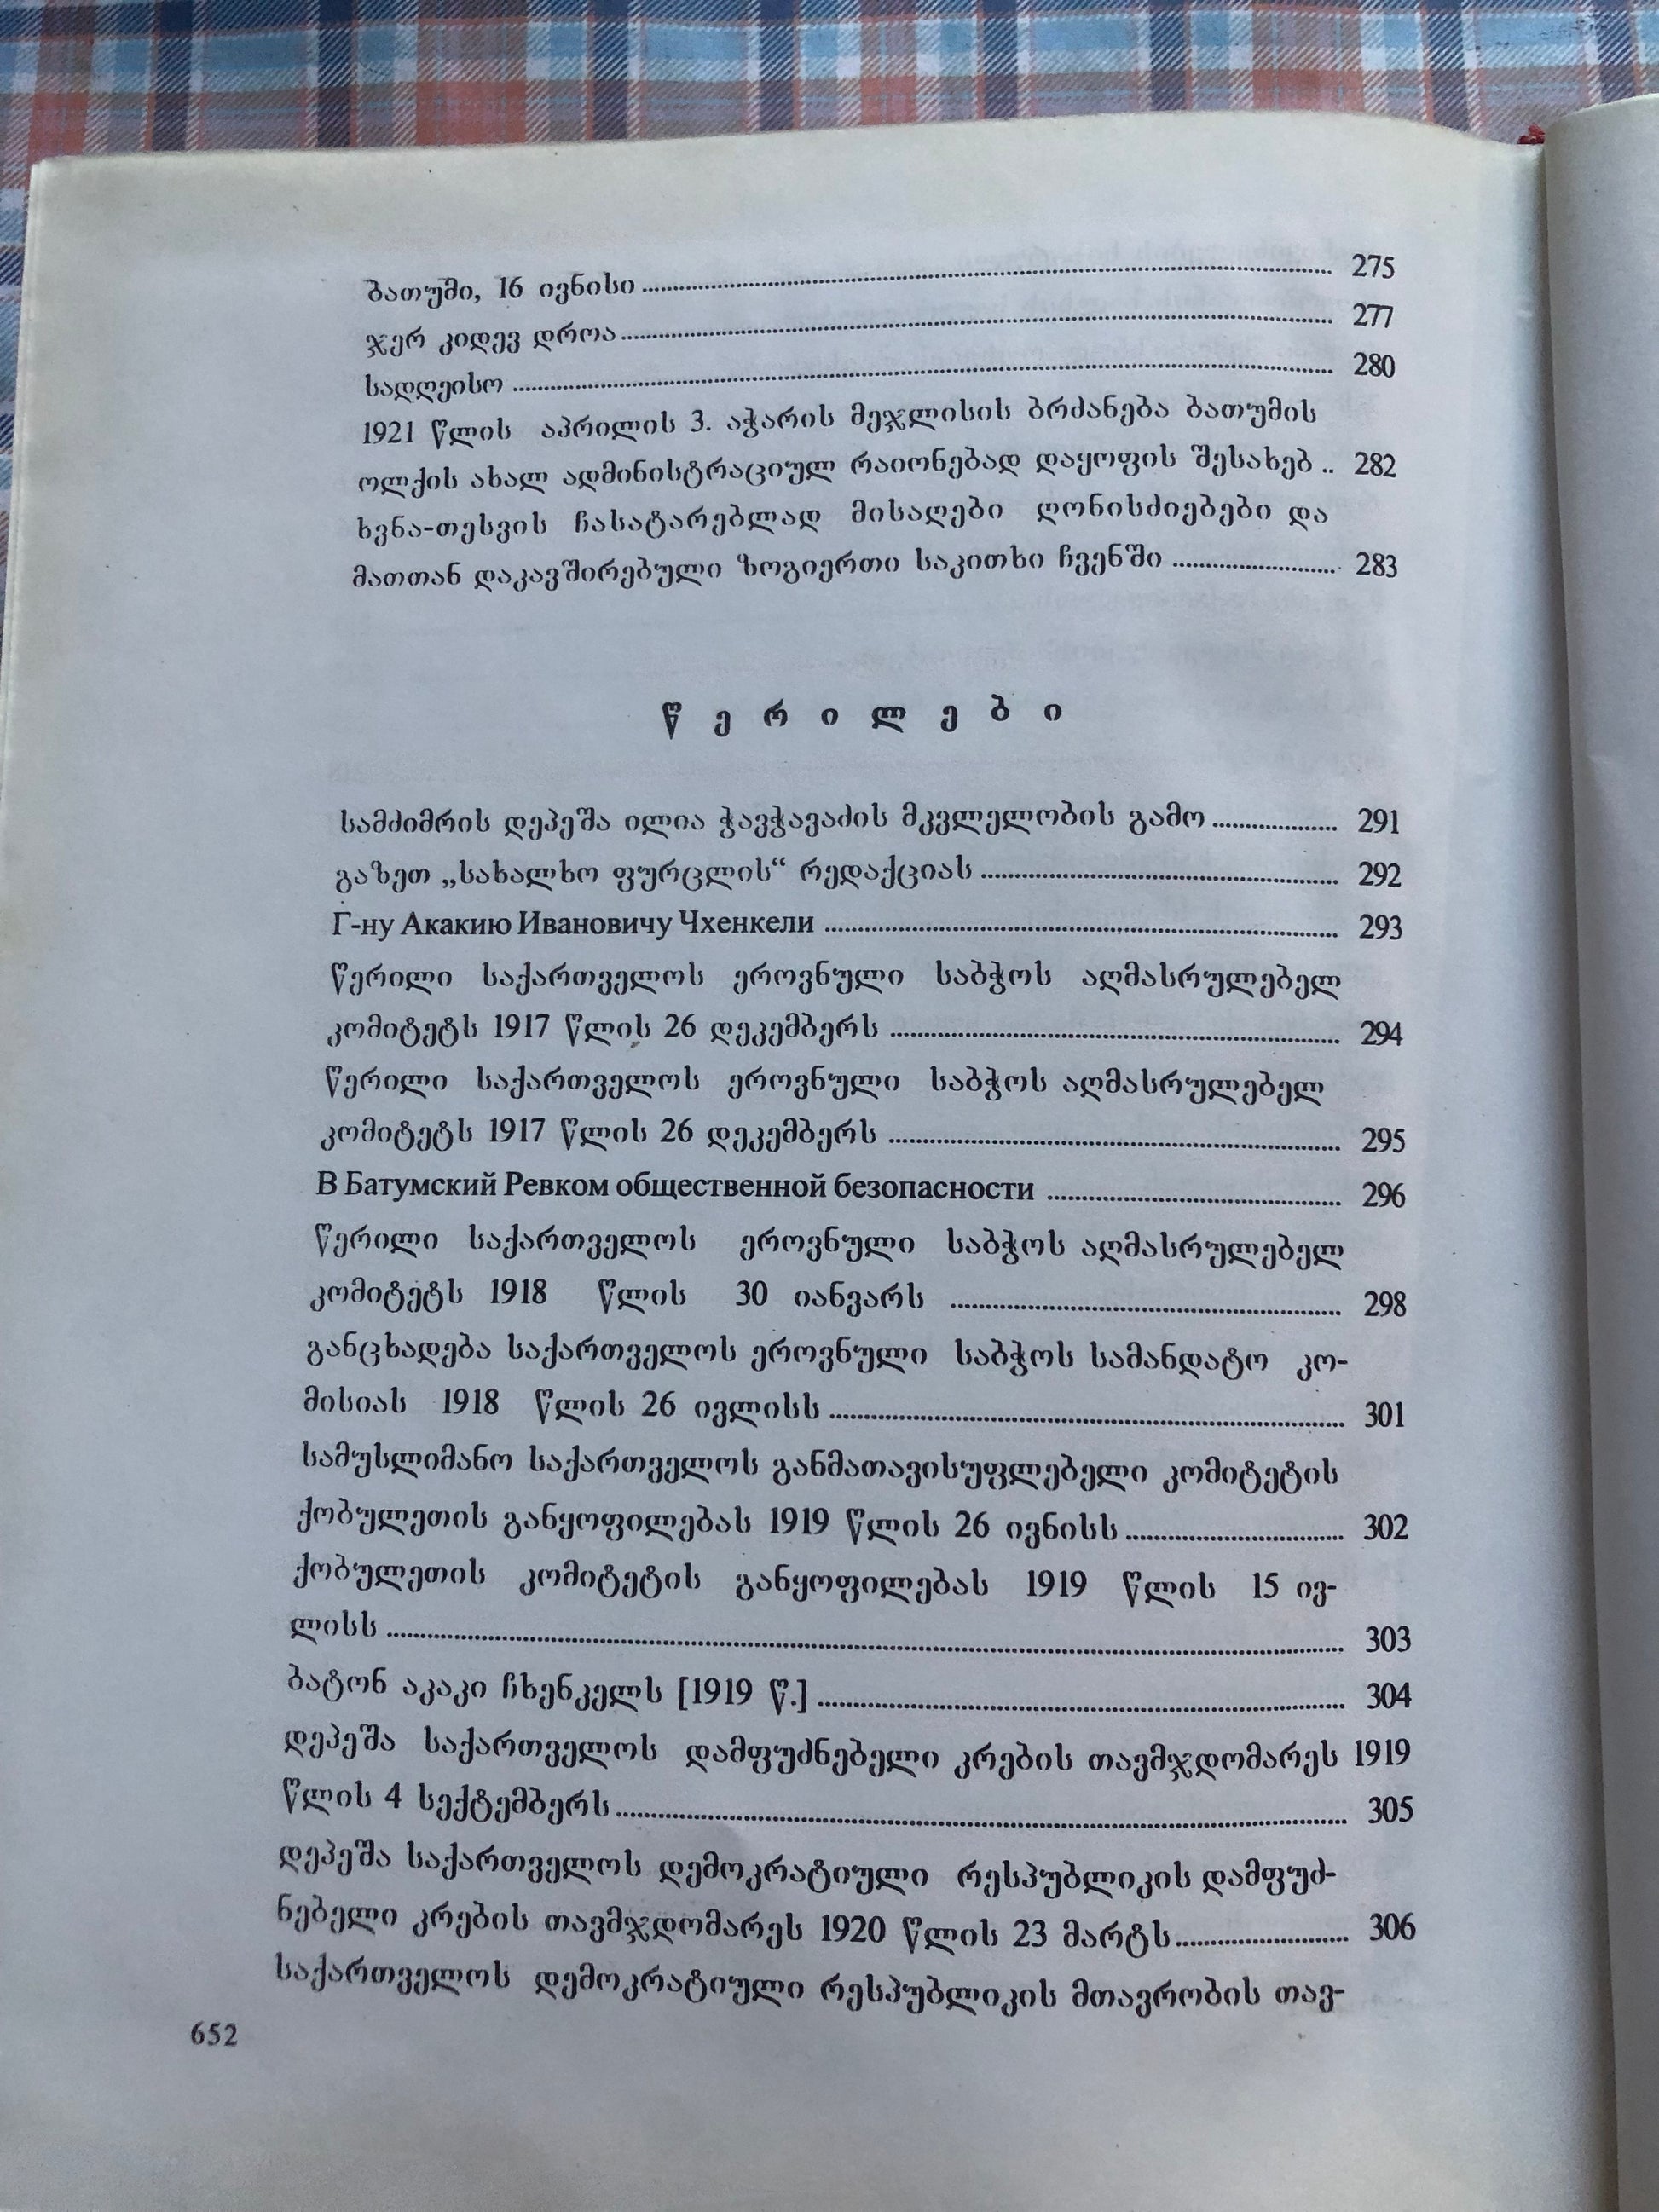 ბათუში, 16 ივნისი ........ 275
ჯერ კიდევ დროა ........ 277
სადღეისო ........ 280
1921 წლის აპრილის 3. აჭარის მეჯლისის ბრძანება ბათუმის
ოლქის ახალ ადმინისტრაციულ რაიონებად დაყოფის შესახებ .. 282
ხვნა-თესვის ჩასატარებლად მისაღები ღონისძიებები და
მათთან დაკავშირებული ზოგიერთი საკითხი ჩვენში ........ 283
წერილები
სამძიმრის დეპეშა ილია ჭავჭავაძის მკვლელობის გამო ........ 291
გაზეთ „სახალხო ფურცლის“ რედაქციას ........ 292
Г-ну Акакию Ивановичу Чхенкели ........ 293
წერილი საქართველოს ეროვნული საბჭოს აღმასრულებელ
კომიტეტს 1917 წლის 26 დეკემბერს ........ 294
წერილი საქართველოს ეროვნული საბჭოს აღმასრულებელ
კომიტეტს 1917 წლის 26 დეკემბერს ........ 295
В Батумский Ревком общественной безопасности ........ 296
წერილი საქართველოს ეროვნული საბჭოს აღმასრულებელ
კომიტეტს 1918 წლის 30 იანვარს ........ 298
განცხადება საქართველოს ეროვნული საბჭოს სამანდატო კო-
მისიას 1918 წლის 26 ივლისს ........ 301
სამუსლიმანო საქართველოს განმათავისუფლებელი კომიტეტის
ქობულეთის განყოფილებას 1919 წლის 26 ივნისს ........ 302
ქობულეთის კომიტეტის განყოფილებას 1919 წლის 15 ივ-
ლისს ........ 303
ბატონ აკაკი ჩხენკელს [1919 წ.] ........ 304
დეპეშა საქართველოს დამფუძნებელი კრების თავმჯდომარეს 1919
წლის 4 სექტემბერს ........ 305
დეპეშა საქართველოს დემოკრატიული რესპუბლიკის დამფუძ-
ნებელი კრების თავმჯდომარეს 1920 წლის 23 მარტს ........ 306
საქართველოს დემოკრატიული რესპუბლიკის მთავრობის თავ-
652